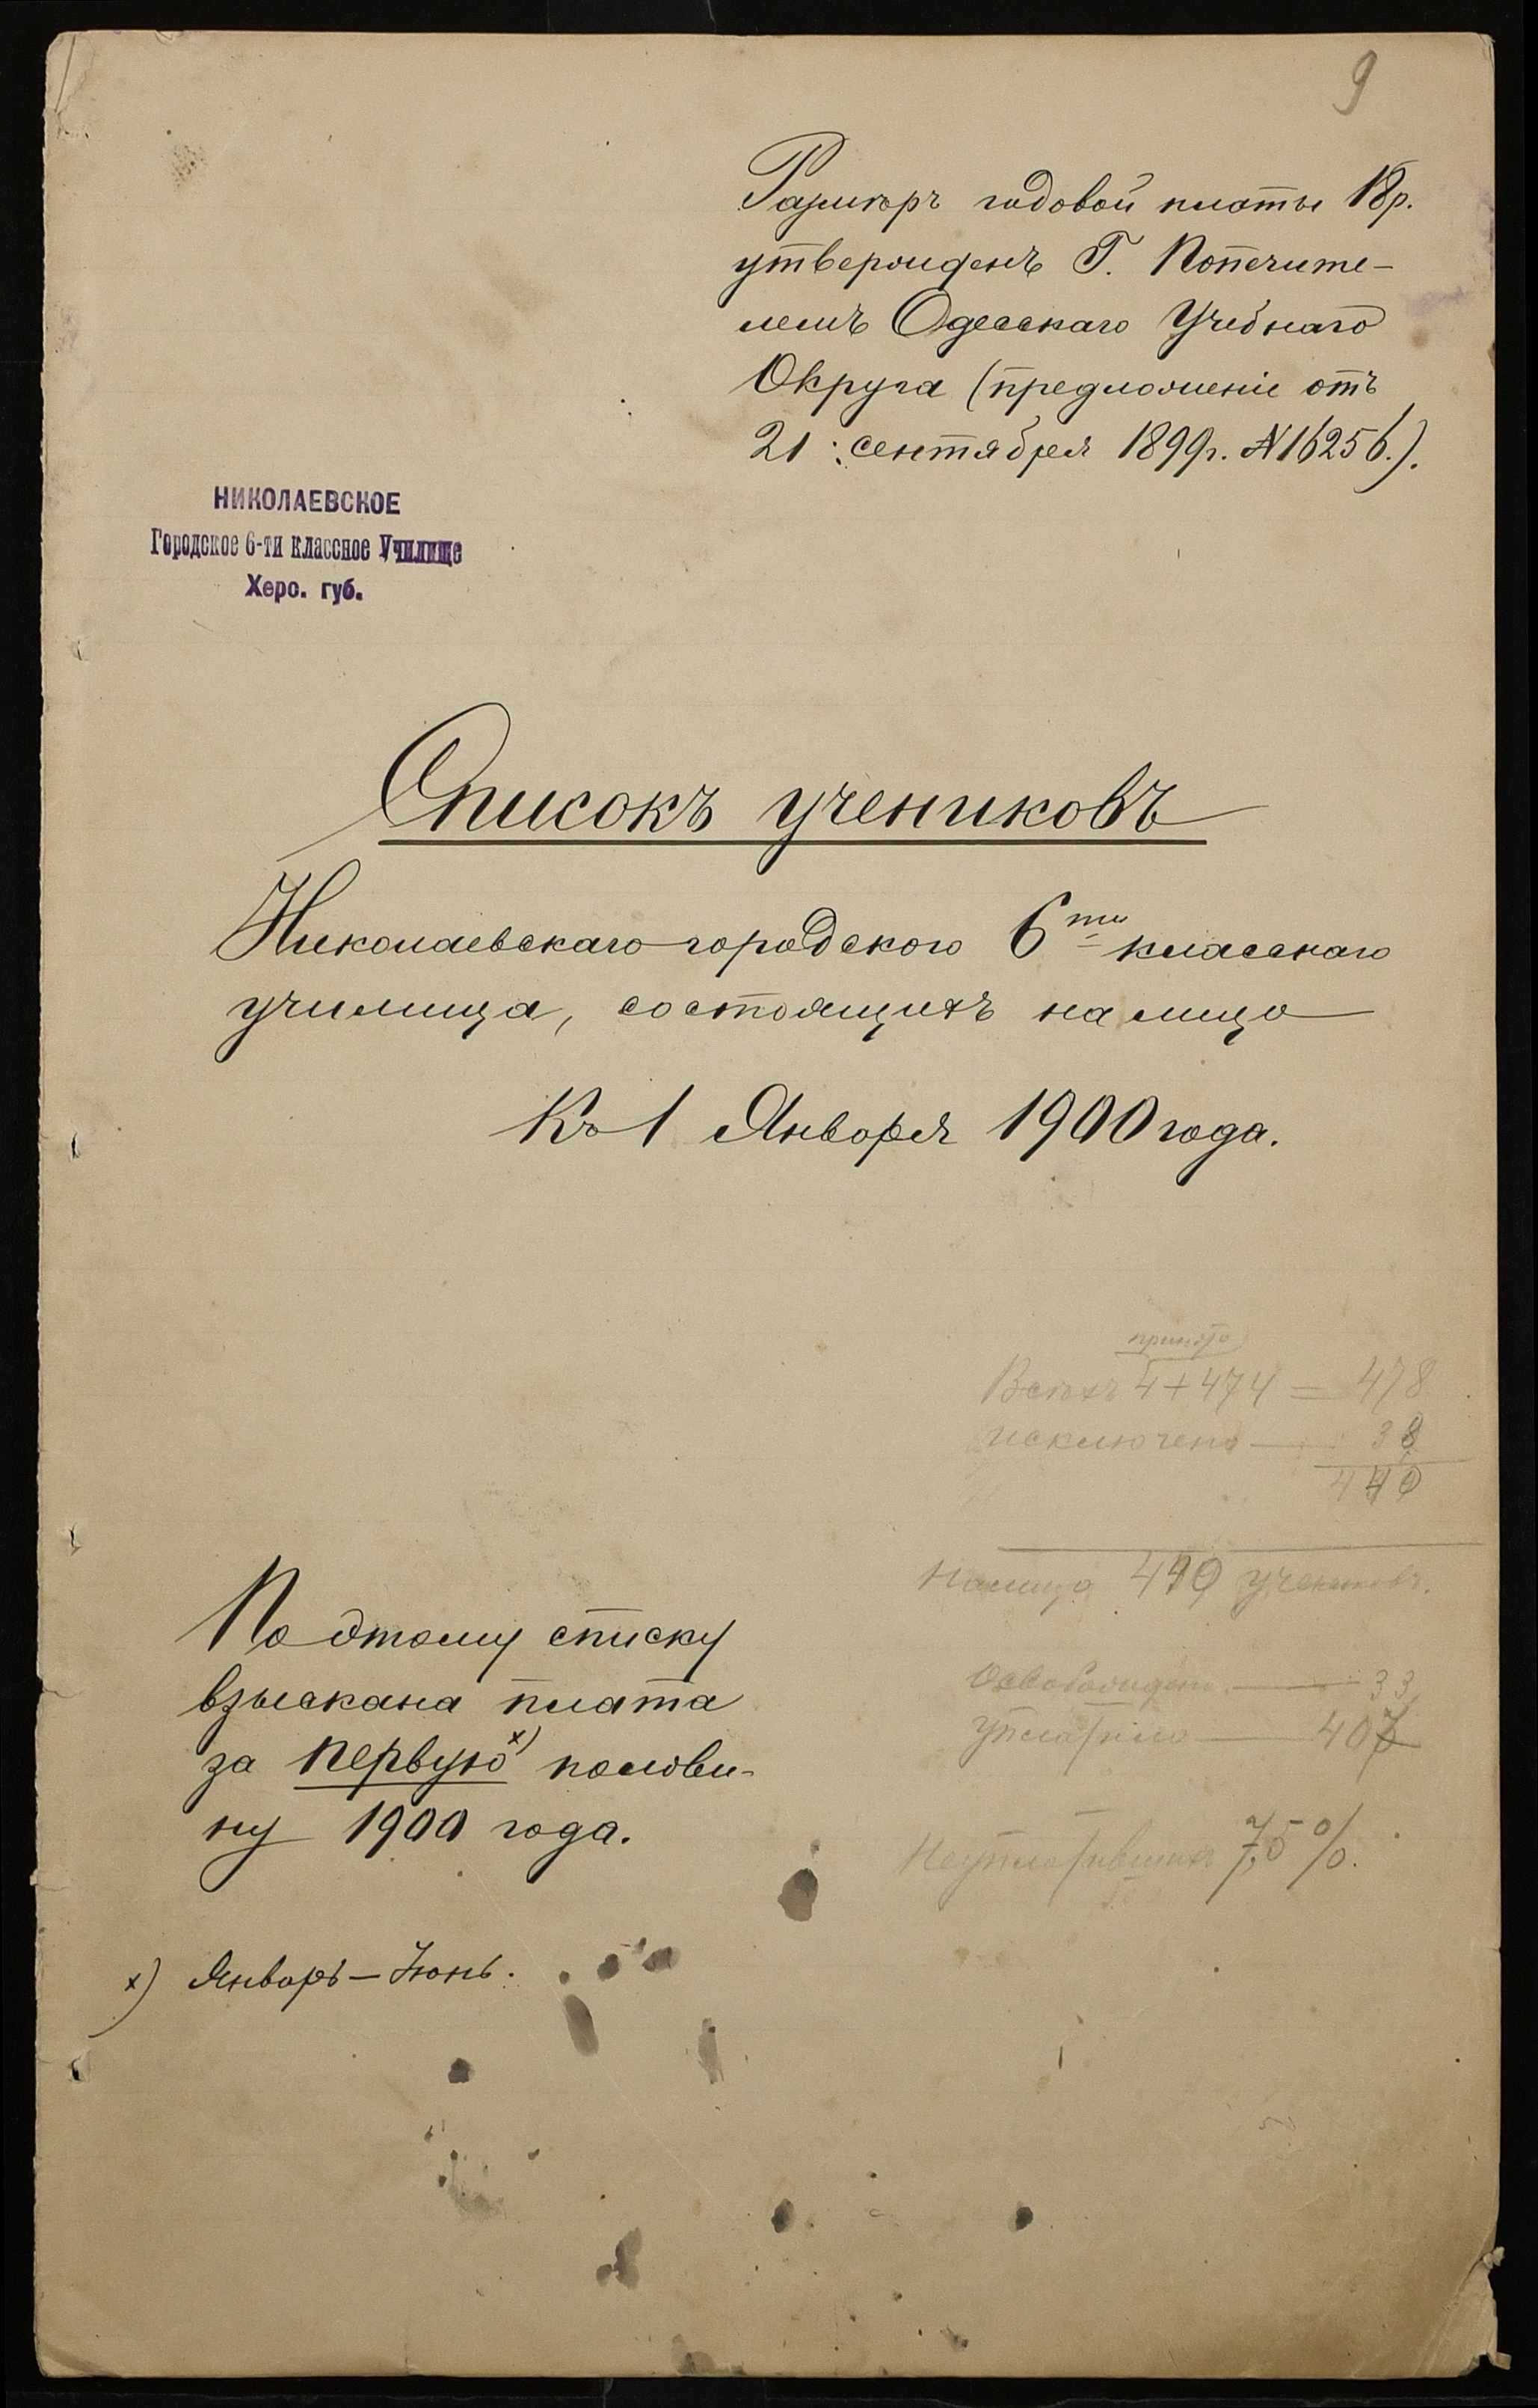 9
Размѣръ годовой платы 18р.
утвержденъ Г. Попечите-
лемъ Одесскаго Учебнаго
Округа (предложеніе отъ
21 сентября 1899г. №16256.).
НИКОЛАЕВСКОЕ
Городское 6-ти классное Училище
Херс. губ.
Списокъ учениковъ
Николаевскаго городского 6ти классного
училища, состоящихъ на лицо
Къ 1 Января 1900 года.
принято
Всѣхъ 4+474 = 478
исключено — 38
440
Налицо 440 учениковъ.
Освобожден. — 33
уплатило — 407
Неуплатившихъ 7,5%.
По этому списку
взыскана плата
за первую х) полови-
ну 1900 года.
х) Январь – Іюнь.